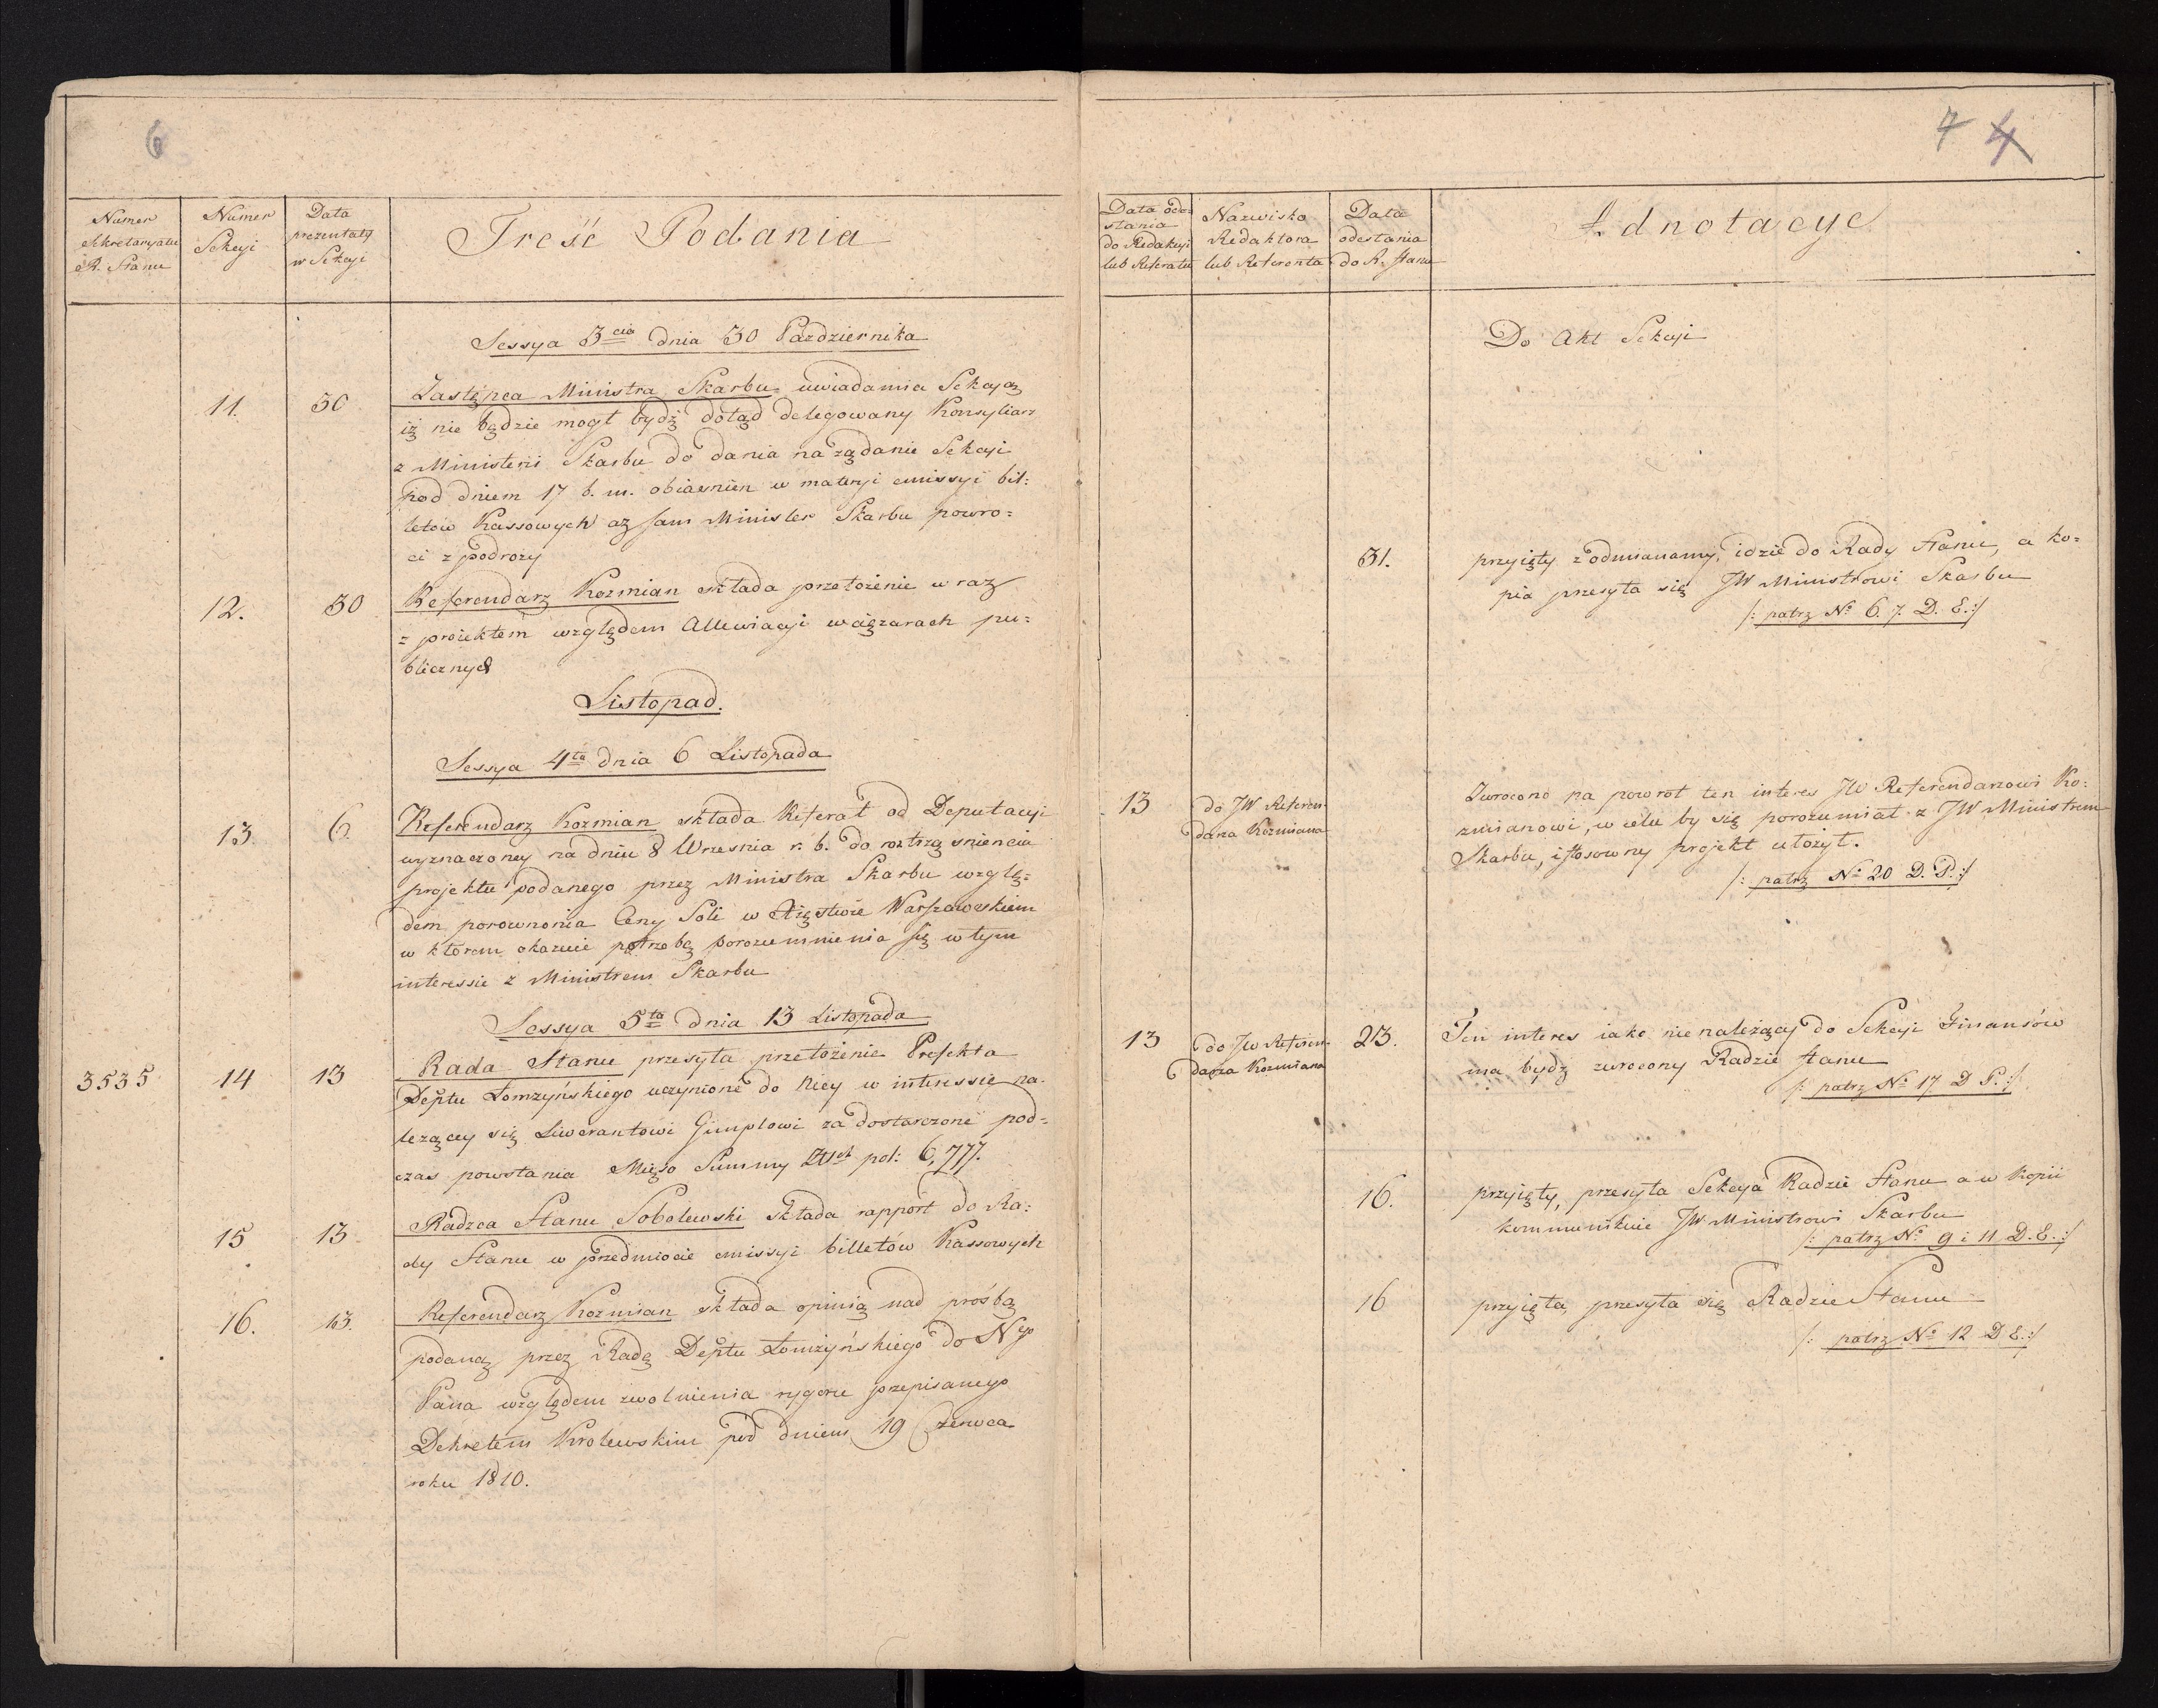 6
Numer
Sekretaryatu
R. Stanu
Numer
Sekcyi
Data
prezentaty
w Sekcyi
Treść Podania
Sessya 3cia dnia 30 Pazdziernika
11. 30 Zastępca Ministra Skarbu uwiadamia Sekcyą
iż nie będzie mogł bydź dotąd delegowany Konsyliarz
z Ministerii Skarbu do dania na żądanie Sekcyi
pod dniem 17 b. m. obiasnien w materyi emissyi bil:
letow Kassowych aż sam Minister Skarbu powro=
ci z podrozy
12. 30 Referendarz Kozmian składa przełożenie w raz
z proiektem względem Allewiacyi w ciężarach pu:
blicznych
Listopad.
Sessya 4ta dnia 6 Listopada
13. 6. Referendarz Kozmian składa Referat od Deputacyi
wyznaczoney na dniu 8 Wrzesnia r. b. do roztrząsniencia
projektu podanego przez Ministra Skarbu wzglę=
dem porownania Ceny Soli w Xięstwie Warszawskiem
w ktorem okazuie potrzebę porozumnienia się w tym
interessie z Ministrem Skarbu
Sessya 5ta dnia 13 Listopada
3535 14 13 Rada Stanu przesyła przełożenie Prefekta
Deptu Łomzyńskiego uczynione do Niey w interessie na-
leżącey się Liwerantowi Gimplowi za dostarczone pod=
czas powstania Mięso Summy Złłch pol: 6,777.
15 13 Radzca Stanu Sobolewski składa rapport do Ra:
dy Stanu w przedmiocie emissyi billetów Kassowych
16. 13. Referendarz Kozmian składa opinią nad prośbą
podaną przez Radę Deptu Łomżyńskiego do Ngo
Pana względem zwolnienia rygoru przepisanego
Dekretem Krolewskim pod dniem 19 Czerwca
roku 1810.
7 4
Data ode=
słania
do Redakcyi
lub Referatu
Nazwisko
Redaktora
lub Referenta
Data
odesłania
do R. Stanu
Adnotacye
Do Akt Sekcyi
31. przyięty z odmianamy, idzie do Rady Stanu, a ko=
pia przesyła się JW Ministrowi Skarbu
/: patrz No 6. 7. D. E.:/
13 do JW Referen-
darza Kozmiana
Zwrocono na powrot ten interes JW Referendarzowi Ko:
zmianowi, w celu by się porozumiał z JW Ministrem
Skarbu, i stosowny projekt ułożył.
/: patrz No 20 D. P.:/
13 do JW Referen-
darza Kozmiana
23. Ten interes iako nienależący do Sekcyi Finansów
ma bydź zwrocony Radzie Stanu
/: patrz No 17 D P.:/
16. przyięty, przesyła Sekcya Radzie Stanu a w Kopii
kommunikuie JW Ministrowi Skarbu
/: patrz No 9 i 11 D. E.:/
16 przyięta, przesyła się Radzie Stanu
/: patrz No 12 D E.:/